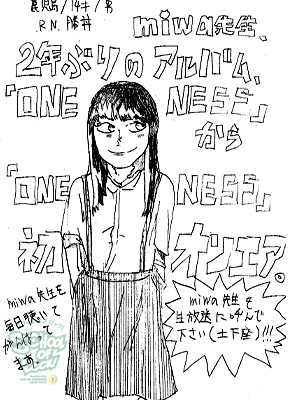 鹿児島/14才/男
R.N. 勝丼
miwa先生、
2年ぶりのアルバム、
「ONENESS」
から
「ONENESS」
初オンエア。
miwa先生を
毎日聴いて
がんばって
ます。
miwa先生を
生放送に呼んで
下さい(土下座)!!!